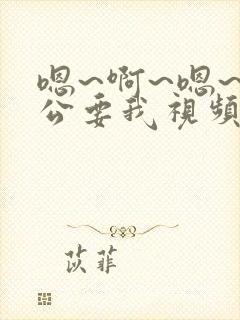 嗯~啊~嗯~
公要我視頻
苡菲